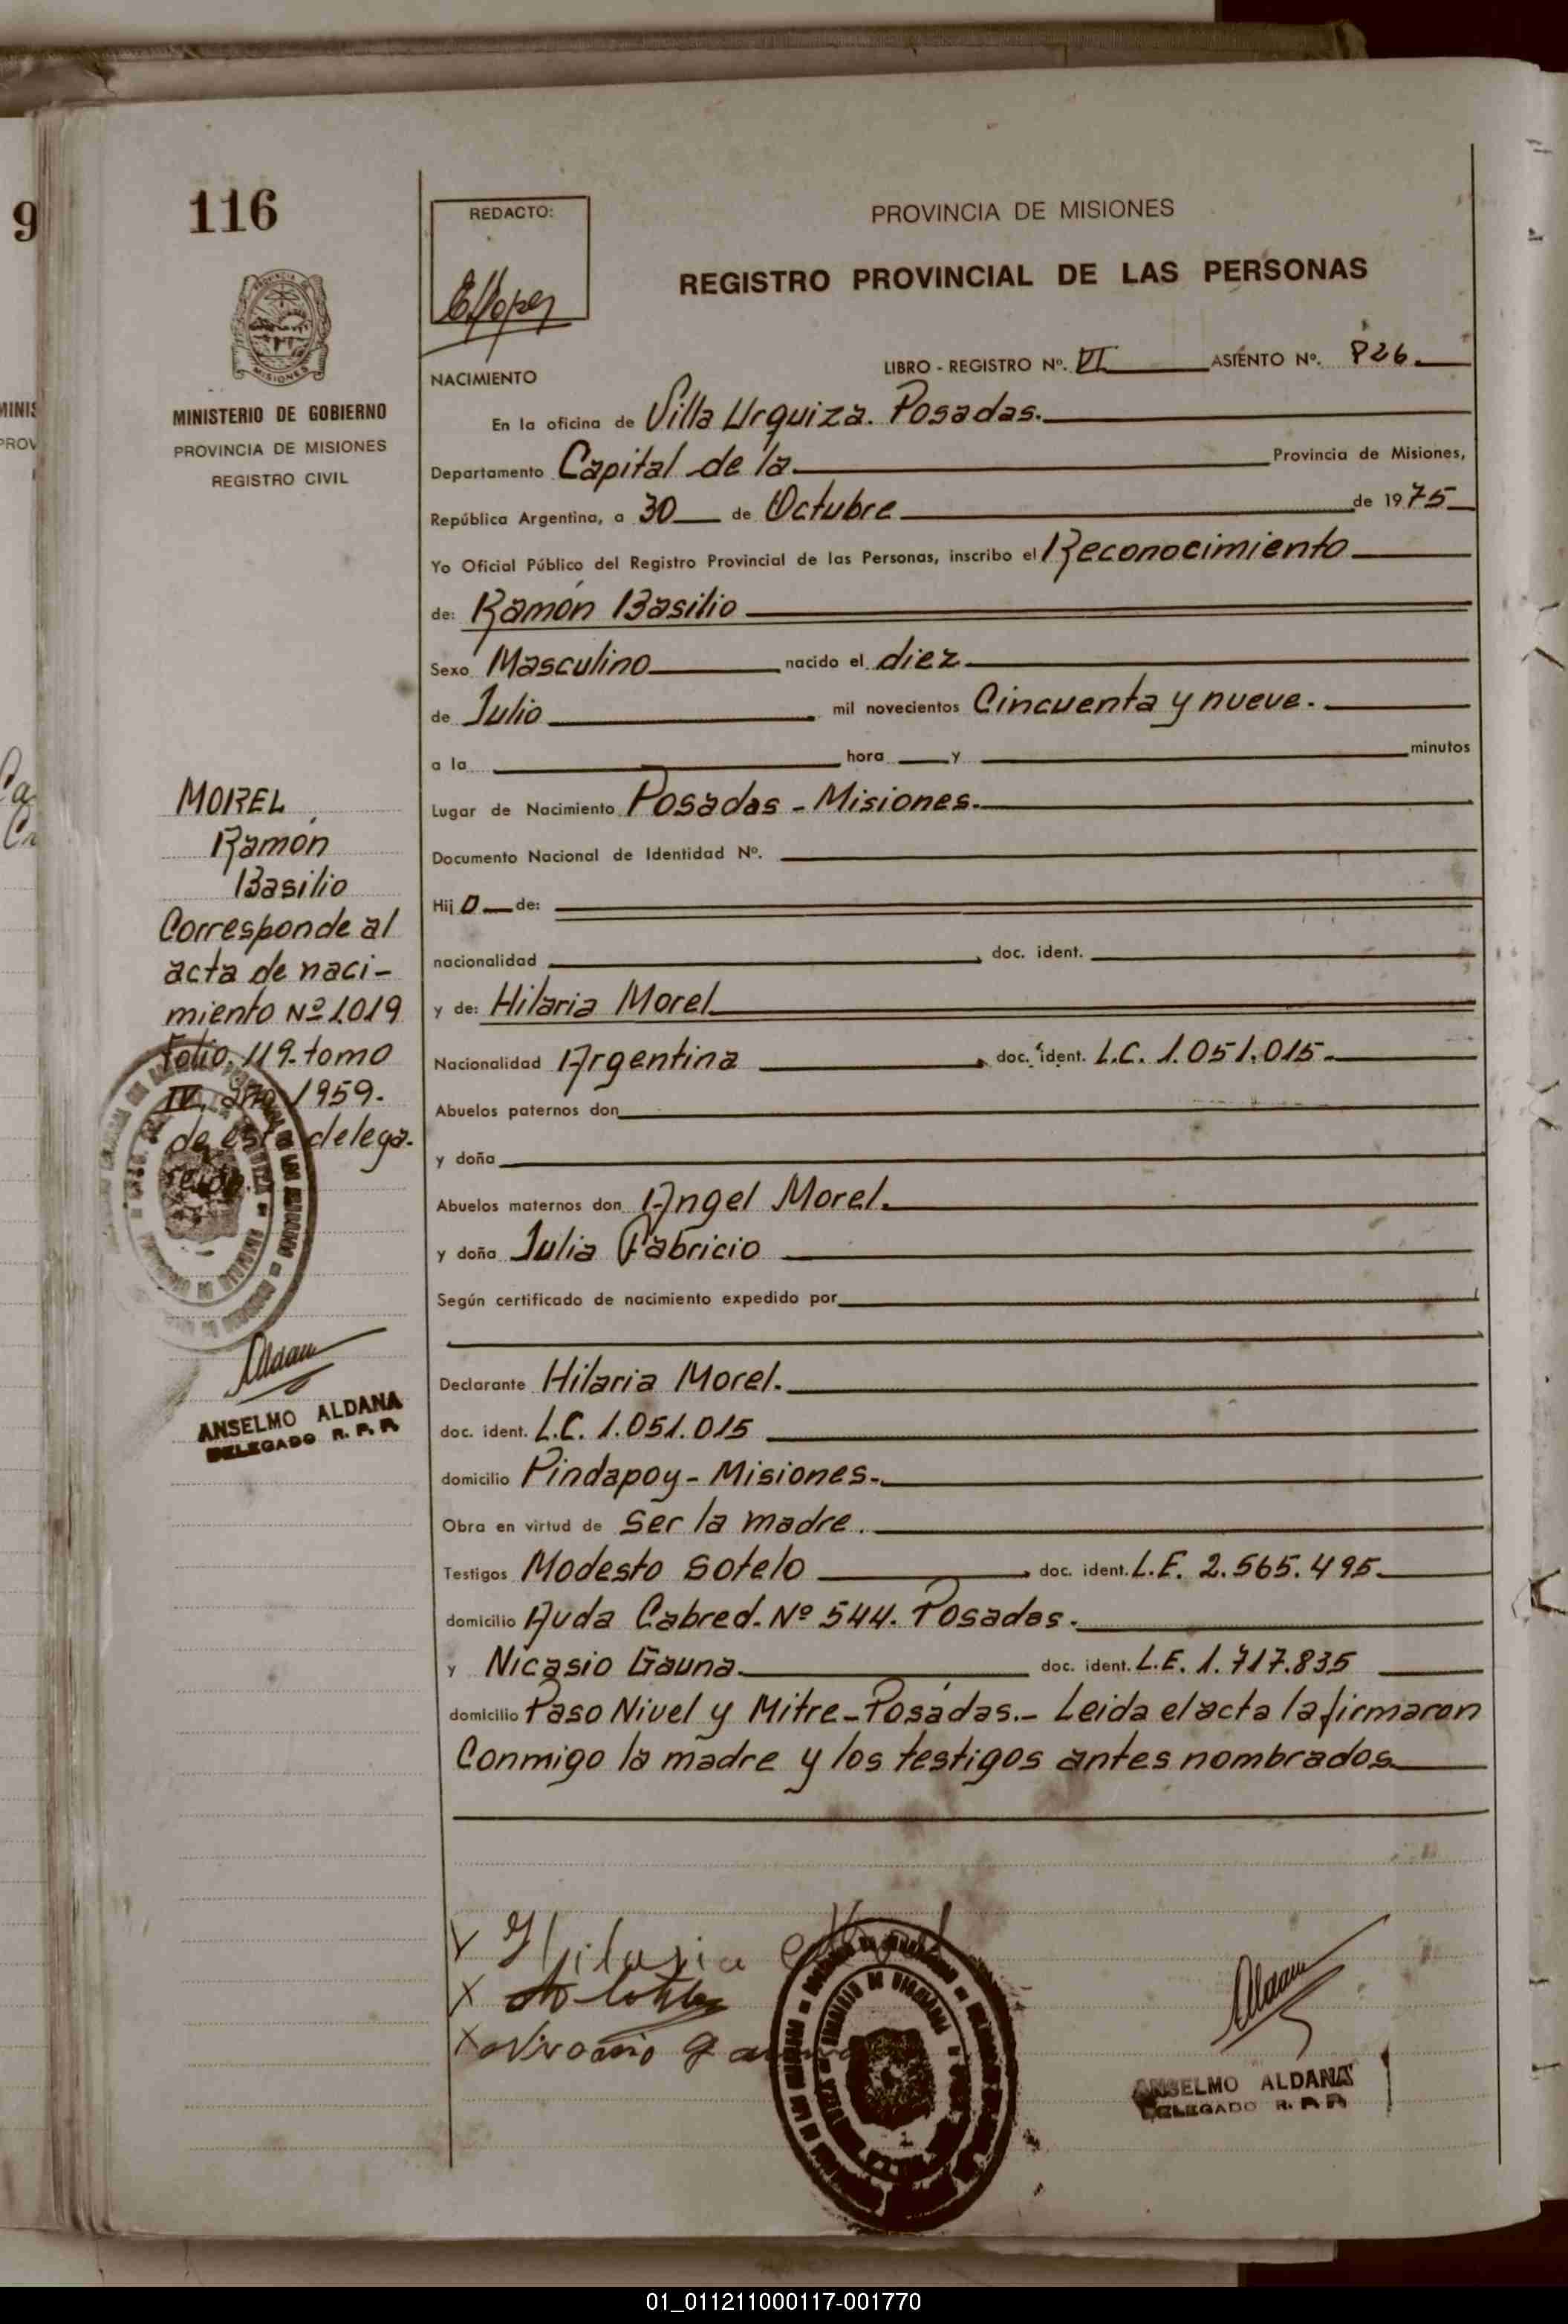 9
116
REDACTO:
PROVINCIA DE MISIONES
REGISTRO PROVINCIAL DE LAS PERSONAS
MISIONES
MINISTERIO DE GOBIERNO
PROVINCIA DE MISIONES
REGISTRO CIVIL
LIBRO - REGISTRO Nº. VI ASIENTO Nº. 826
NACIMIENTO
En la oficina de Villa Urquiza. Posadas.
Departamento Capital de la Provincia de Misiones,
República Argentina, a 30 de Octubre de 1975
Yo Oficial Público del Registro Provincial de las Personas, inscribo el Reconocimiento
de: Ramón Basilio
Sexo Masculino nacido el diez
de Julio mil novecientos Cincuenta y nueve.
a la hora y minutos
Lugar de Nacimiento Posadas - Misiones.
Documento Nacional de Identidad Nº.
Hijo de:
nacionalidad doc. ident.
y de: Hilaria Morel
Nacionalidad Argentina doc. ident. L.C. 1.051.015
Abuelos paternos don
y doña
Abuelos maternos don Angel Morel.
y doña Julia Fabricio
Según certificado de nacimiento expedido por
Declarante Hilaria Morel.
doc. ident. L.C. 1.051.015
domicilio Pindapoy - Misiones.
Obra en virtud de ser la madre.
Testigos Modesto Sotelo doc. ident. L.E. 2.565.495
domicilio Avda Cabred. Nº 544. Posadas.
y Nicasio Gauna doc. ident. L.E. 1.717.835
domicilio Paso Nivel y Mitre - Posadas.- Leida el acta la firmaron
Conmigo la madre y los testigos antes nombrados
MOREL
Ramón
Basilio
Corresponde al
acta de naci-
miento Nº 1.019
Folio. 119. tomo
IV. año 1959.
de esta delega-
ción.
ANSELMO ALDANA
DELEGADO R. P. P.
Hilaria
ANSELMO ALDANA
DELEGADO R. P. P.
01_011211000117-001770